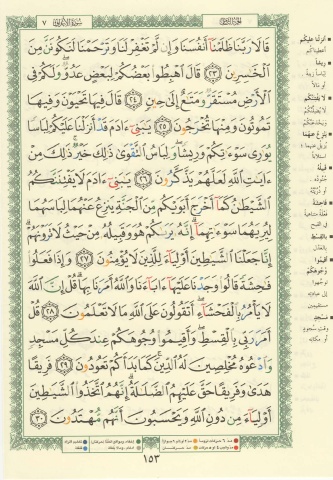 سورة الأعراف ٧
الجزء الثامن
قَالَا رَبَّنَا ظَلَمْنَا أَنفُسَنَا وَإِن لَّمْ تَغْفِرْ لَنَا وَتَرْحَمْنَا لَنَكُونَنَّ مِنَ
الْخَاسِرِينَ ٢٣ قَالَ اهْبِطُوا بَعْضُكُمْ لِبَعْضٍ عَدُوٌّ وَلَكُمْ فِي
الْأَرْضِ مُسْتَقَرٌّ وَمَتَاعٌ إِلَىٰ حِينٍ ٢٤ قَالَ فِيهَا تَحْيَوْنَ وَفِيهَا
تَمُوتُونَ وَمِنْهَا تُخْرَجُونَ ٢٥ يَا بَنِي آدَمَ قَدْ أَنزَلْنَا عَلَيْكُمْ لِبَاسًا
يُوَارِي سَوْآتِكُمْ وَرِيشًا وَلِبَاسُ التَّقْوَىٰ ذَٰلِكَ خَيْرٌ ذَٰلِكَ مِنْ
آيَاتِ اللَّهِ لَعَلَّهُمْ يَذَّكَّرُونَ ٢٦ يَا بَنِي آدَمَ لَا يَفْتِنَنَّكُمُ
الشَّيْطَانُ كَمَا أَخْرَجَ أَبَوَيْكُم مِّنَ الْجَنَّةِ يَنزِعُ عَنْهُمَا لِبَاسَهُمَا
لِيُرِيَهُمَا سَوْآتِهِمَا إِنَّهُ يَرَاكُمْ هُوَ وَقَبِيلُهُ مِنْ حَيْثُ لَا تَرَوْنَهُمْ
إِنَّا جَعَلْنَا الشَّيَاطِينَ أَوْلِيَاءَ لِلَّذِينَ لَا يُؤْمِنُونَ ٢٧ وَإِذَا فَعَلُوا
فَاحِشَةً قَالُوا وَجَدْنَا عَلَيْهَا آبَاءَنَا وَاللَّهُ أَمَرَنَا بِهَا قُلْ إِنَّ اللَّهَ
لَا يَأْمُرُ بِالْفَحْشَاءِ أَتَقُولُونَ عَلَى اللَّهِ مَا لَا تَعْلَمُونَ ٢٨ قُلْ
أَمَرَ رَبِّي بِالْقِسْطِ وَأَقِيمُوا وُجُوهَكُمْ عِندَ كُلِّ مَسْجِدٍ
وَادْعُوهُ مُخْلِصِينَ لَهُ الدِّينَ كَمَا بَدَأَكُمْ تَعُودُونَ ٢٩ فَرِيقًا
هَدَىٰ وَفَرِيقًا حَقَّ عَلَيْهِمُ الضَّلَالَةُ إِنَّهُمُ اتَّخَذُوا الشَّيَاطِينَ
أَوْلِيَاءَ مِن دُونِ اللَّهِ وَيَحْسَبُونَ أَنَّهُم مُّهْتَدُونَ ٣٠
١٥٣